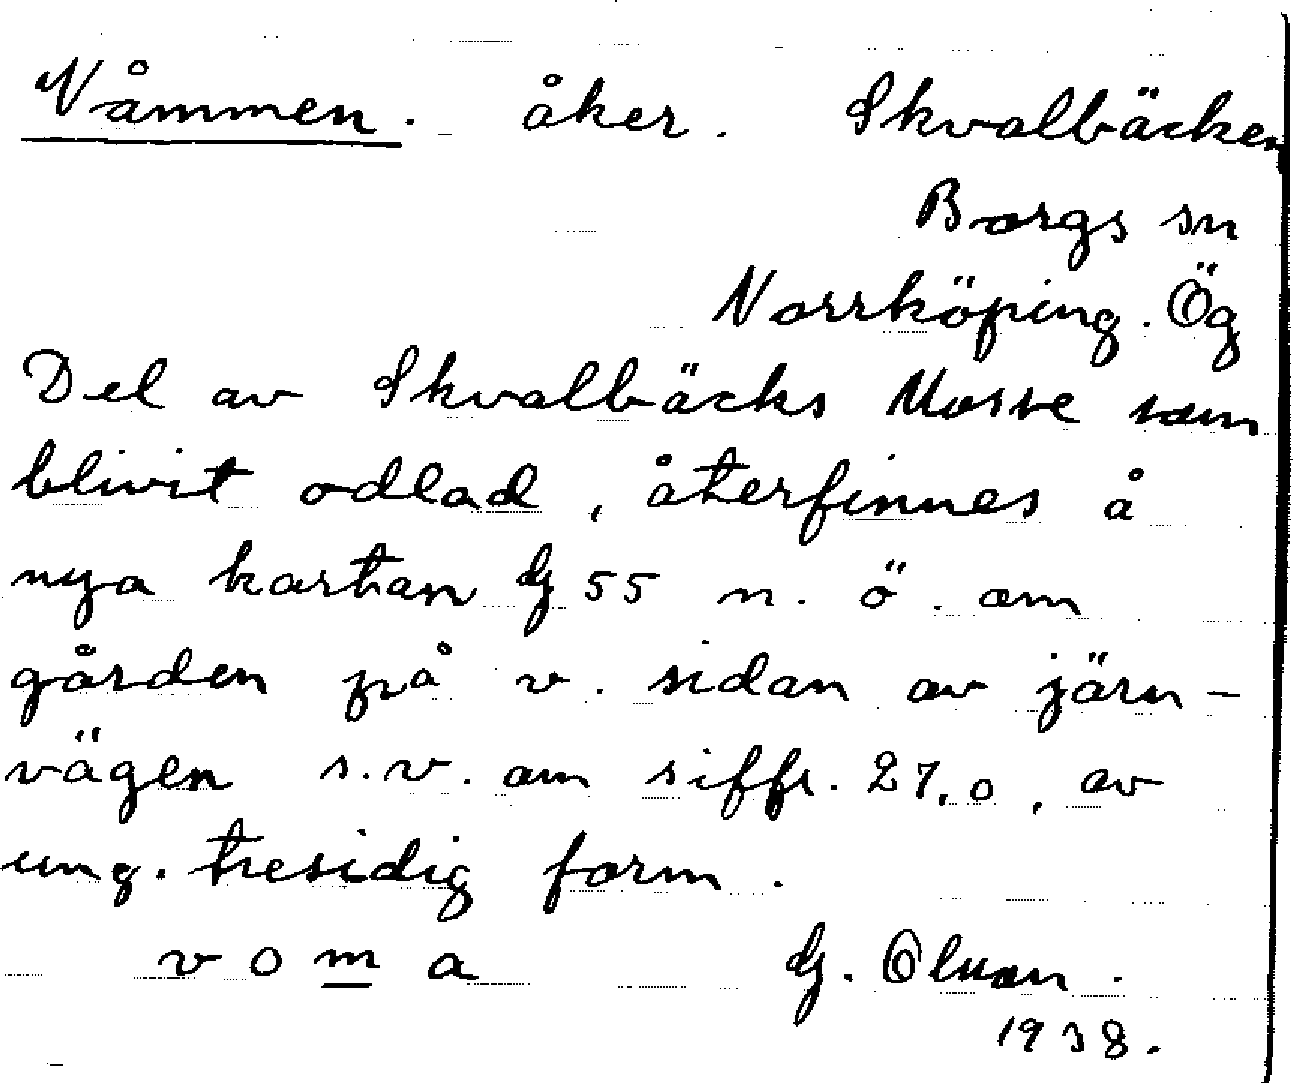 Våmmen. åker. Skvalbäcken
Borgs sn
Norrköping. Ög
Del av Skvalbäcks Mosse som
blivit odlad, återfinnes å
nya kartan G 55 n. ö. om
gården på v. sidan av järn-
vägen s.v. om siffr. 27,0, av
ung. tresidig form.
voma G. Olsson.
1938.